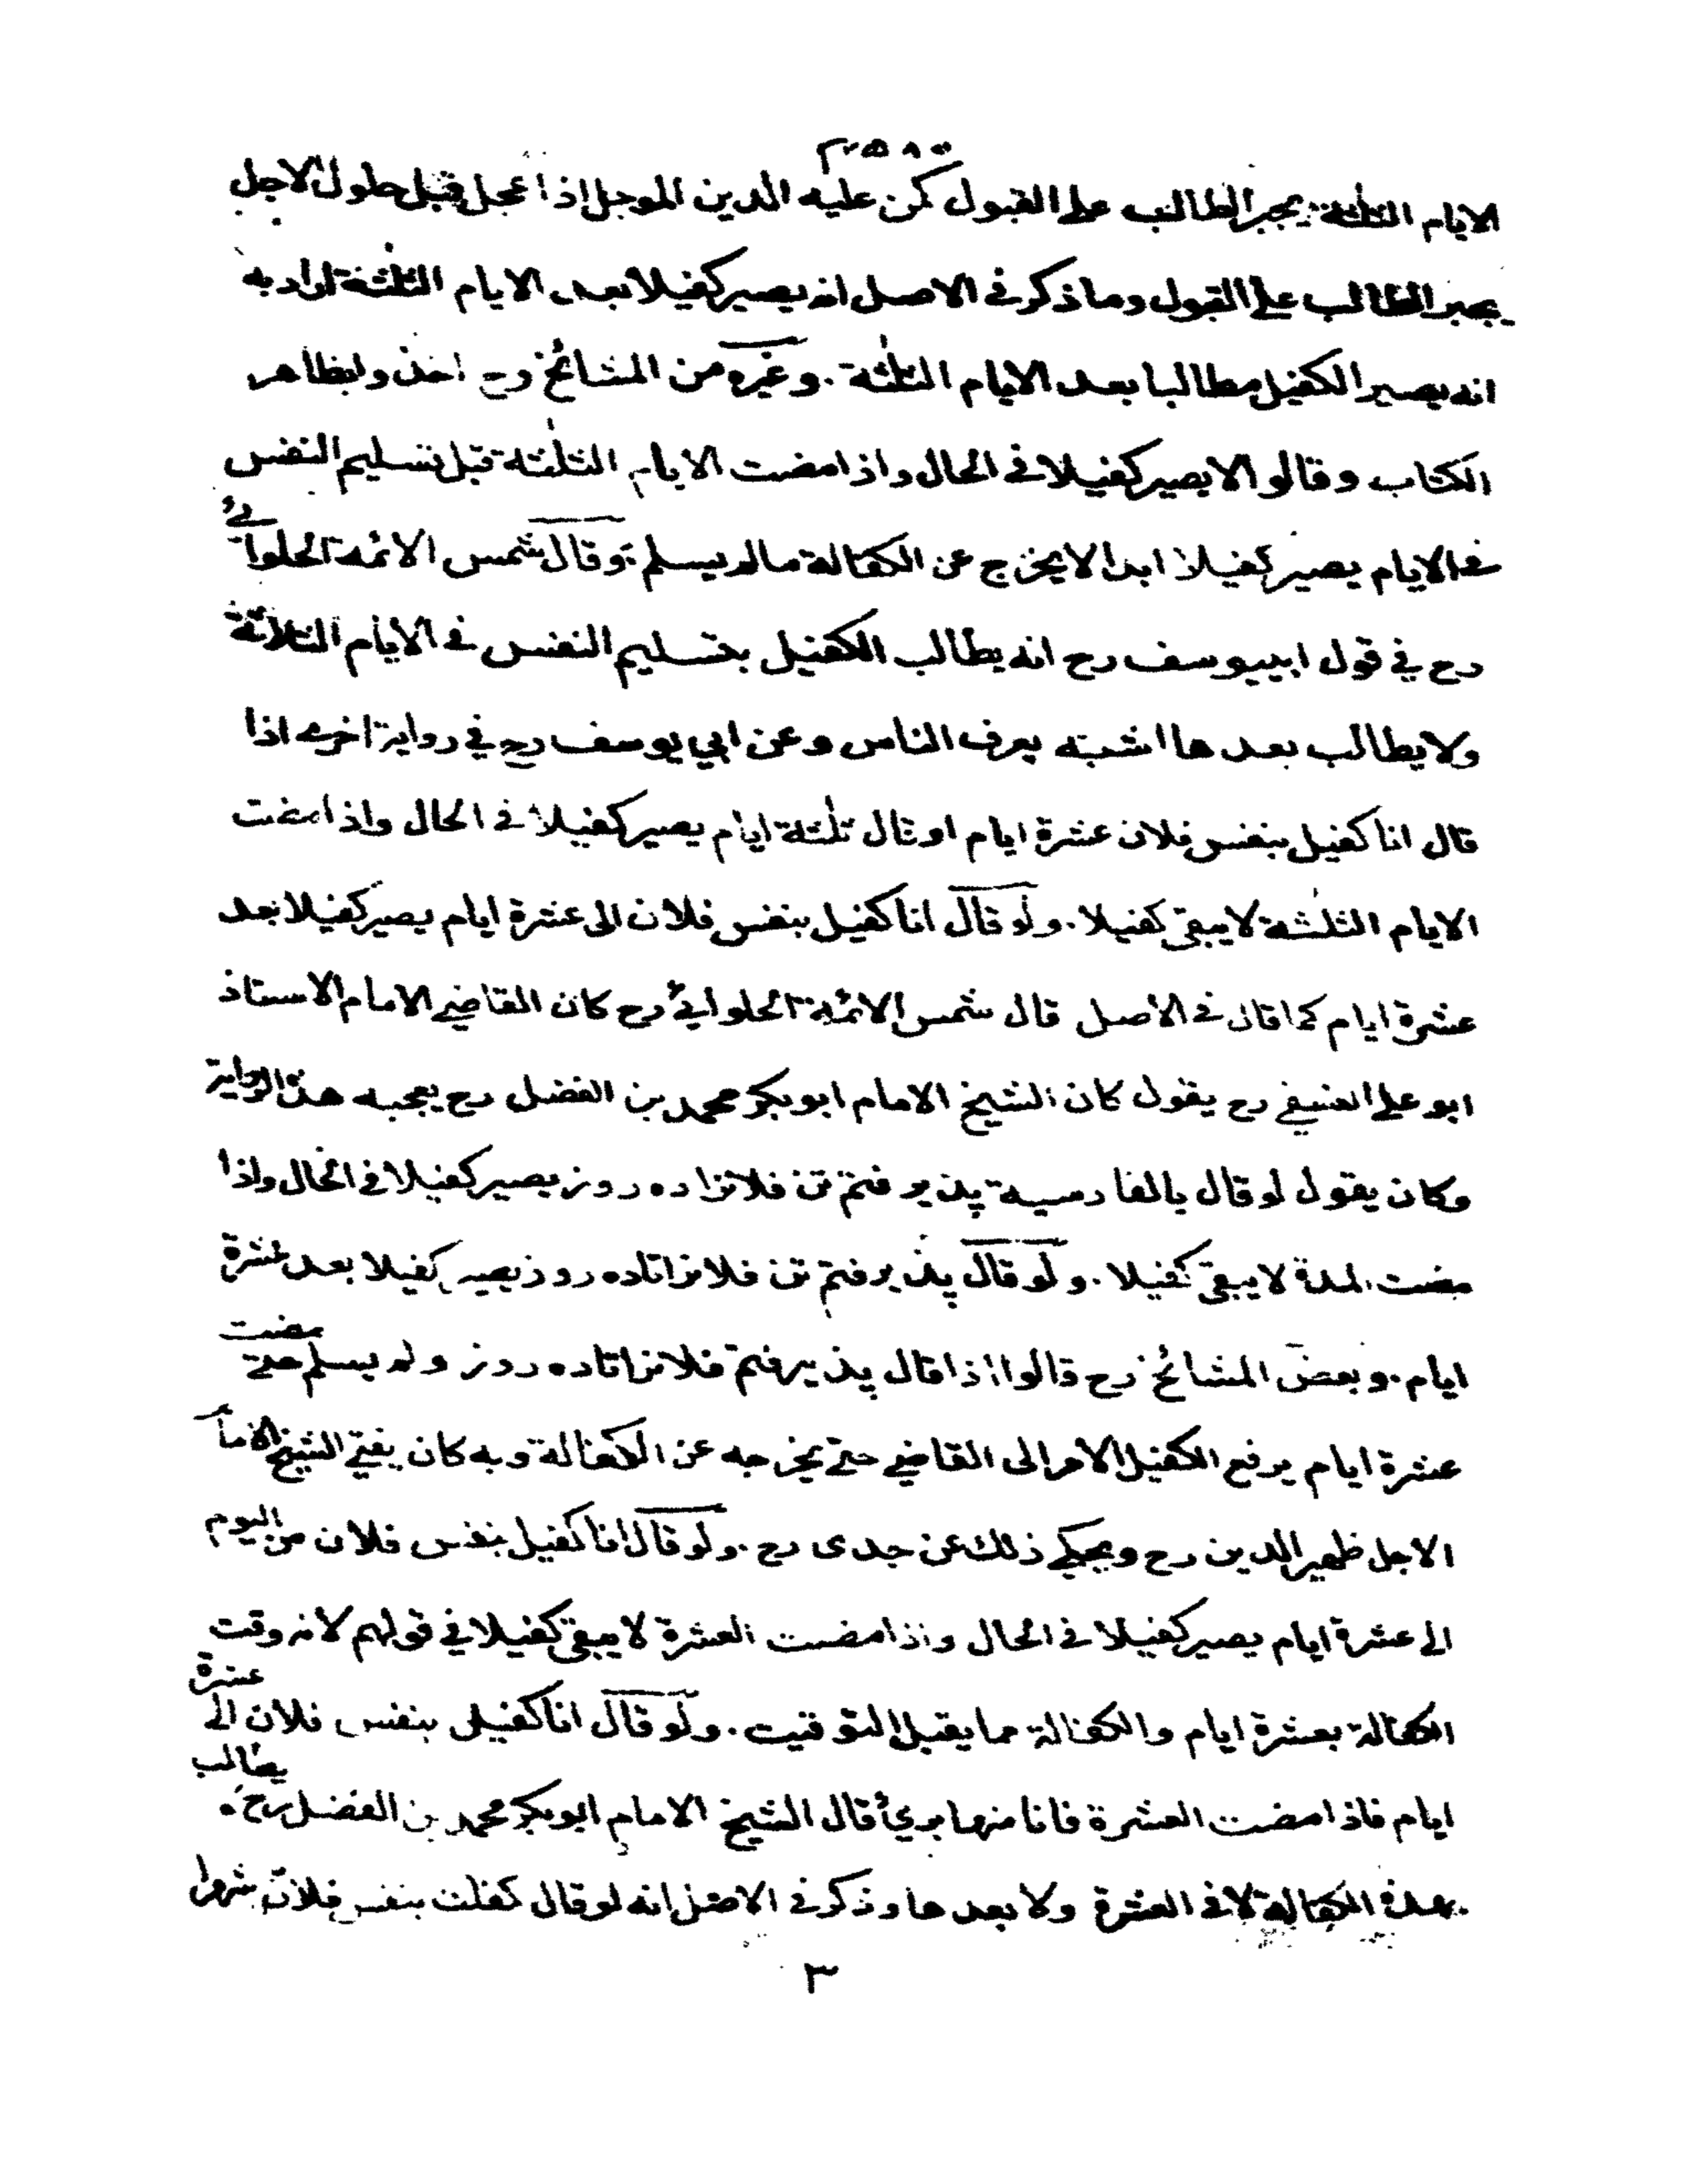 الايام الثلثة يجبر الطالب على القبول كمن عليه الدين الموجل اذا عجل قبل حلول الاجل
يجبر الطالب على القبول وما ذكر في الاصل انه يصير كفيلا بعد الايام الثلثة اراد به
انه يصير الكفيل مطالبا بعد الايام الثلثة . وغيره من المشائخ رح اخذوا بظاهر
الكتاب وقالوا لا يصير كفيلا في الحال واذا مضت الايام الثلثة قبل تسليم النفس
في الايام يصير كفيلا ابدا لا يخرج عن الكفالة مالم يسلم . وقال شمس الائمة الحلوائي
رح في قول ابي يوسف رح انه يطالب الكفيل بتسليم النفس في الايام الثلاثة
ولا يطالب بعدها اشبه بعرف الناس وعن ابي يوسف رح في رواية اخرى اذا
قال انا كفيل بنفس فلان عشرة ايام او قال ثلثة ايام يصير كفيلا في الحال واذا مضت
الايام الثلثة لا يبقى كفيلا . ولو قال انا كفيل بنفس فلان الى عشرة ايام يصير كفيلا بعد
عشرة ايام كما قال في الاصل قال شمس الائمة الحلوائي رح كان القاضي الامام الاستاذ
ابو علي النسفي رح يقول كان الشيخ الامام ابو بكر محمد بن الفضل رح يعجبه هذه الرواية
وكان يقول لو قال بالفارسية پذيرفتم تن فلانرا ده روز يصير كفيلا في الحال واذا
مضت المدة لا يبقى كفيلا . ولو قال پذيرفتم تن فلانرا تا ده روز يصير كفيلا بعد عشرة
ايام . وبعض المشائخ رح قالوا اذا قال پذيرفتم فلانرا تا ده روز ولم يسلم حتى مضت
عشرة ايام يرفع الكفيل الامر الى القاضي حتى يخرجه عن الكفالة وبه كان يفتي الشيخ الاما
الاجل ظهير الدين رح ويحكي ذلك عن جدى رح . ولو قال انا كفيل بنفس فلان من اليوم
الى عشرة ايام يصير كفيلا في الحال واذا مضت العشرة لا يبقى كفيلا في قولهم لانه وقت
الكفالة بعشرة ايام والكفالة مما يقبل التوقيت . ولو قال انا كفيل بنفس فلان الى عشرة
ايام فاذا مضت العشرة فانا منها بريئ قال الشيخ الامام ابو بكر محمد بن الفضل رح لا يطالب
بهذه الكفالة لا في العشرة ولا بعدها وذكر في الاصل انه لو قال كفلت بنفس فلان شهرا
٣